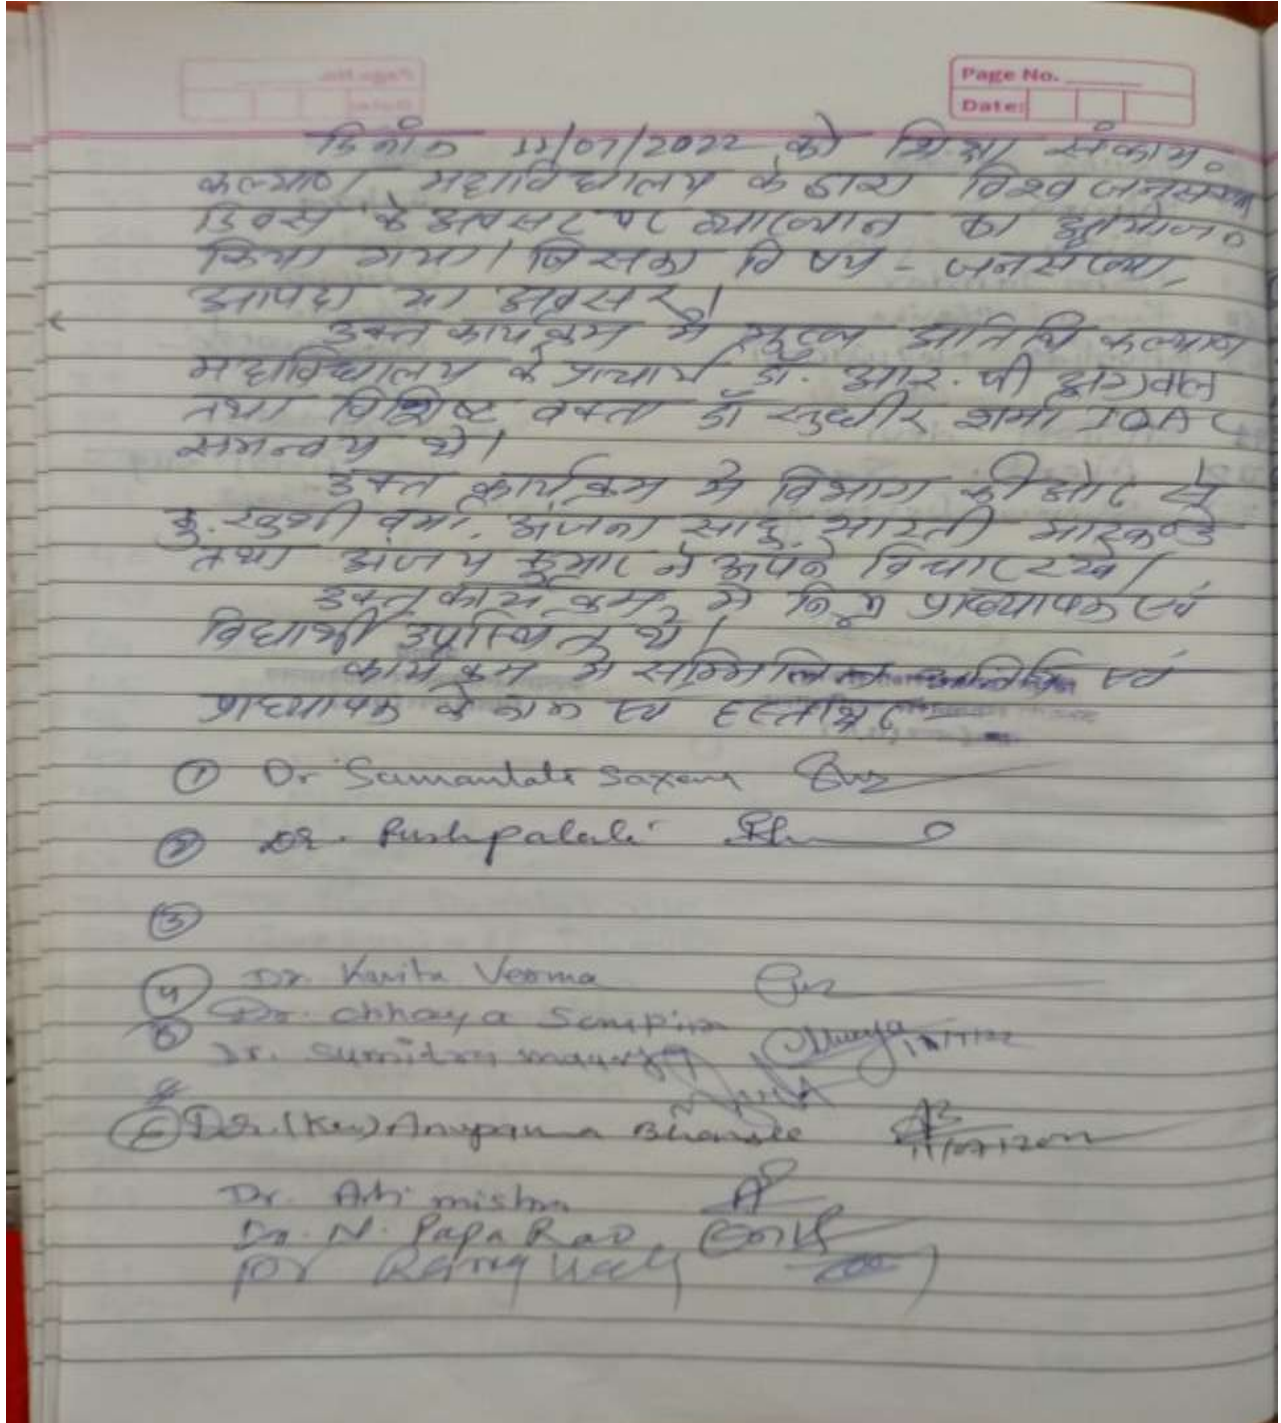 Page No.
Date:
दिनांक 11/07/2022 को शिक्षा संकाय
कल्याण महाविद्यालय के द्वारा विश्व जनसंख्या
दिवस के अवसर पर व्याख्यान का आयोजन
किया गया। जिसका विषय - जनसंख्या,
आपदा या अवसर।
उक्त कार्यक्रम में मुख्य अतिथि कल्याण
महाविद्यालय के प्राचार्य डॉ. आर. पी अग्रवाल
तथा विशिष्ट वक्ता डॉ सुधीर शर्मा IQAC
समन्वय थे।
उक्त कार्यक्रम में विभाग की ओर से
कु. खुशी वर्मा, अंजना साहु, भारती मारकण्डे
तथा अजय कुमार ने अपने विचार रखे।
उक्त कार्यक्रम में निम्न प्राध्यापक एवं
विद्यार्थी उपस्थित थे।
कार्यक्रम में सम्मिलित एवं
प्राध्यापक के नाम एवं हस्ताक्षर
① Dr Samanlata Saxena
② Dr. Pushpalata
③
④ Dr Kavita Verma
⑤ Dr. Chhaya
Dr. Sumitra maurya
⑥ Dr. (Ku) Anupama 11/07/2022
Dr. Arti mishra
Dr. N. Papa Rao
Dr